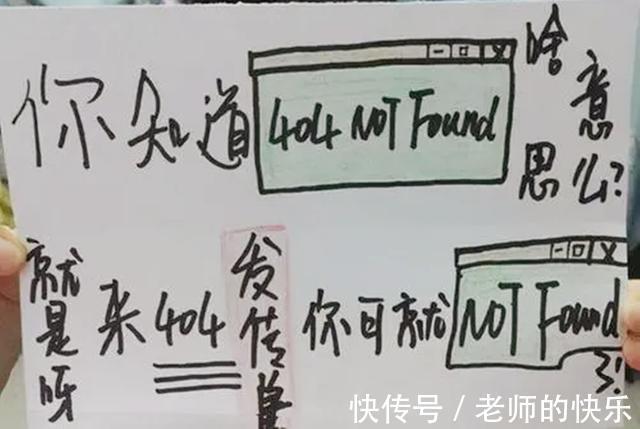 你知道 404 NOT Found 啥意思么?
就是呀 来404发传单 你可就 NOT Found 了!
快传号 / 老师的快乐